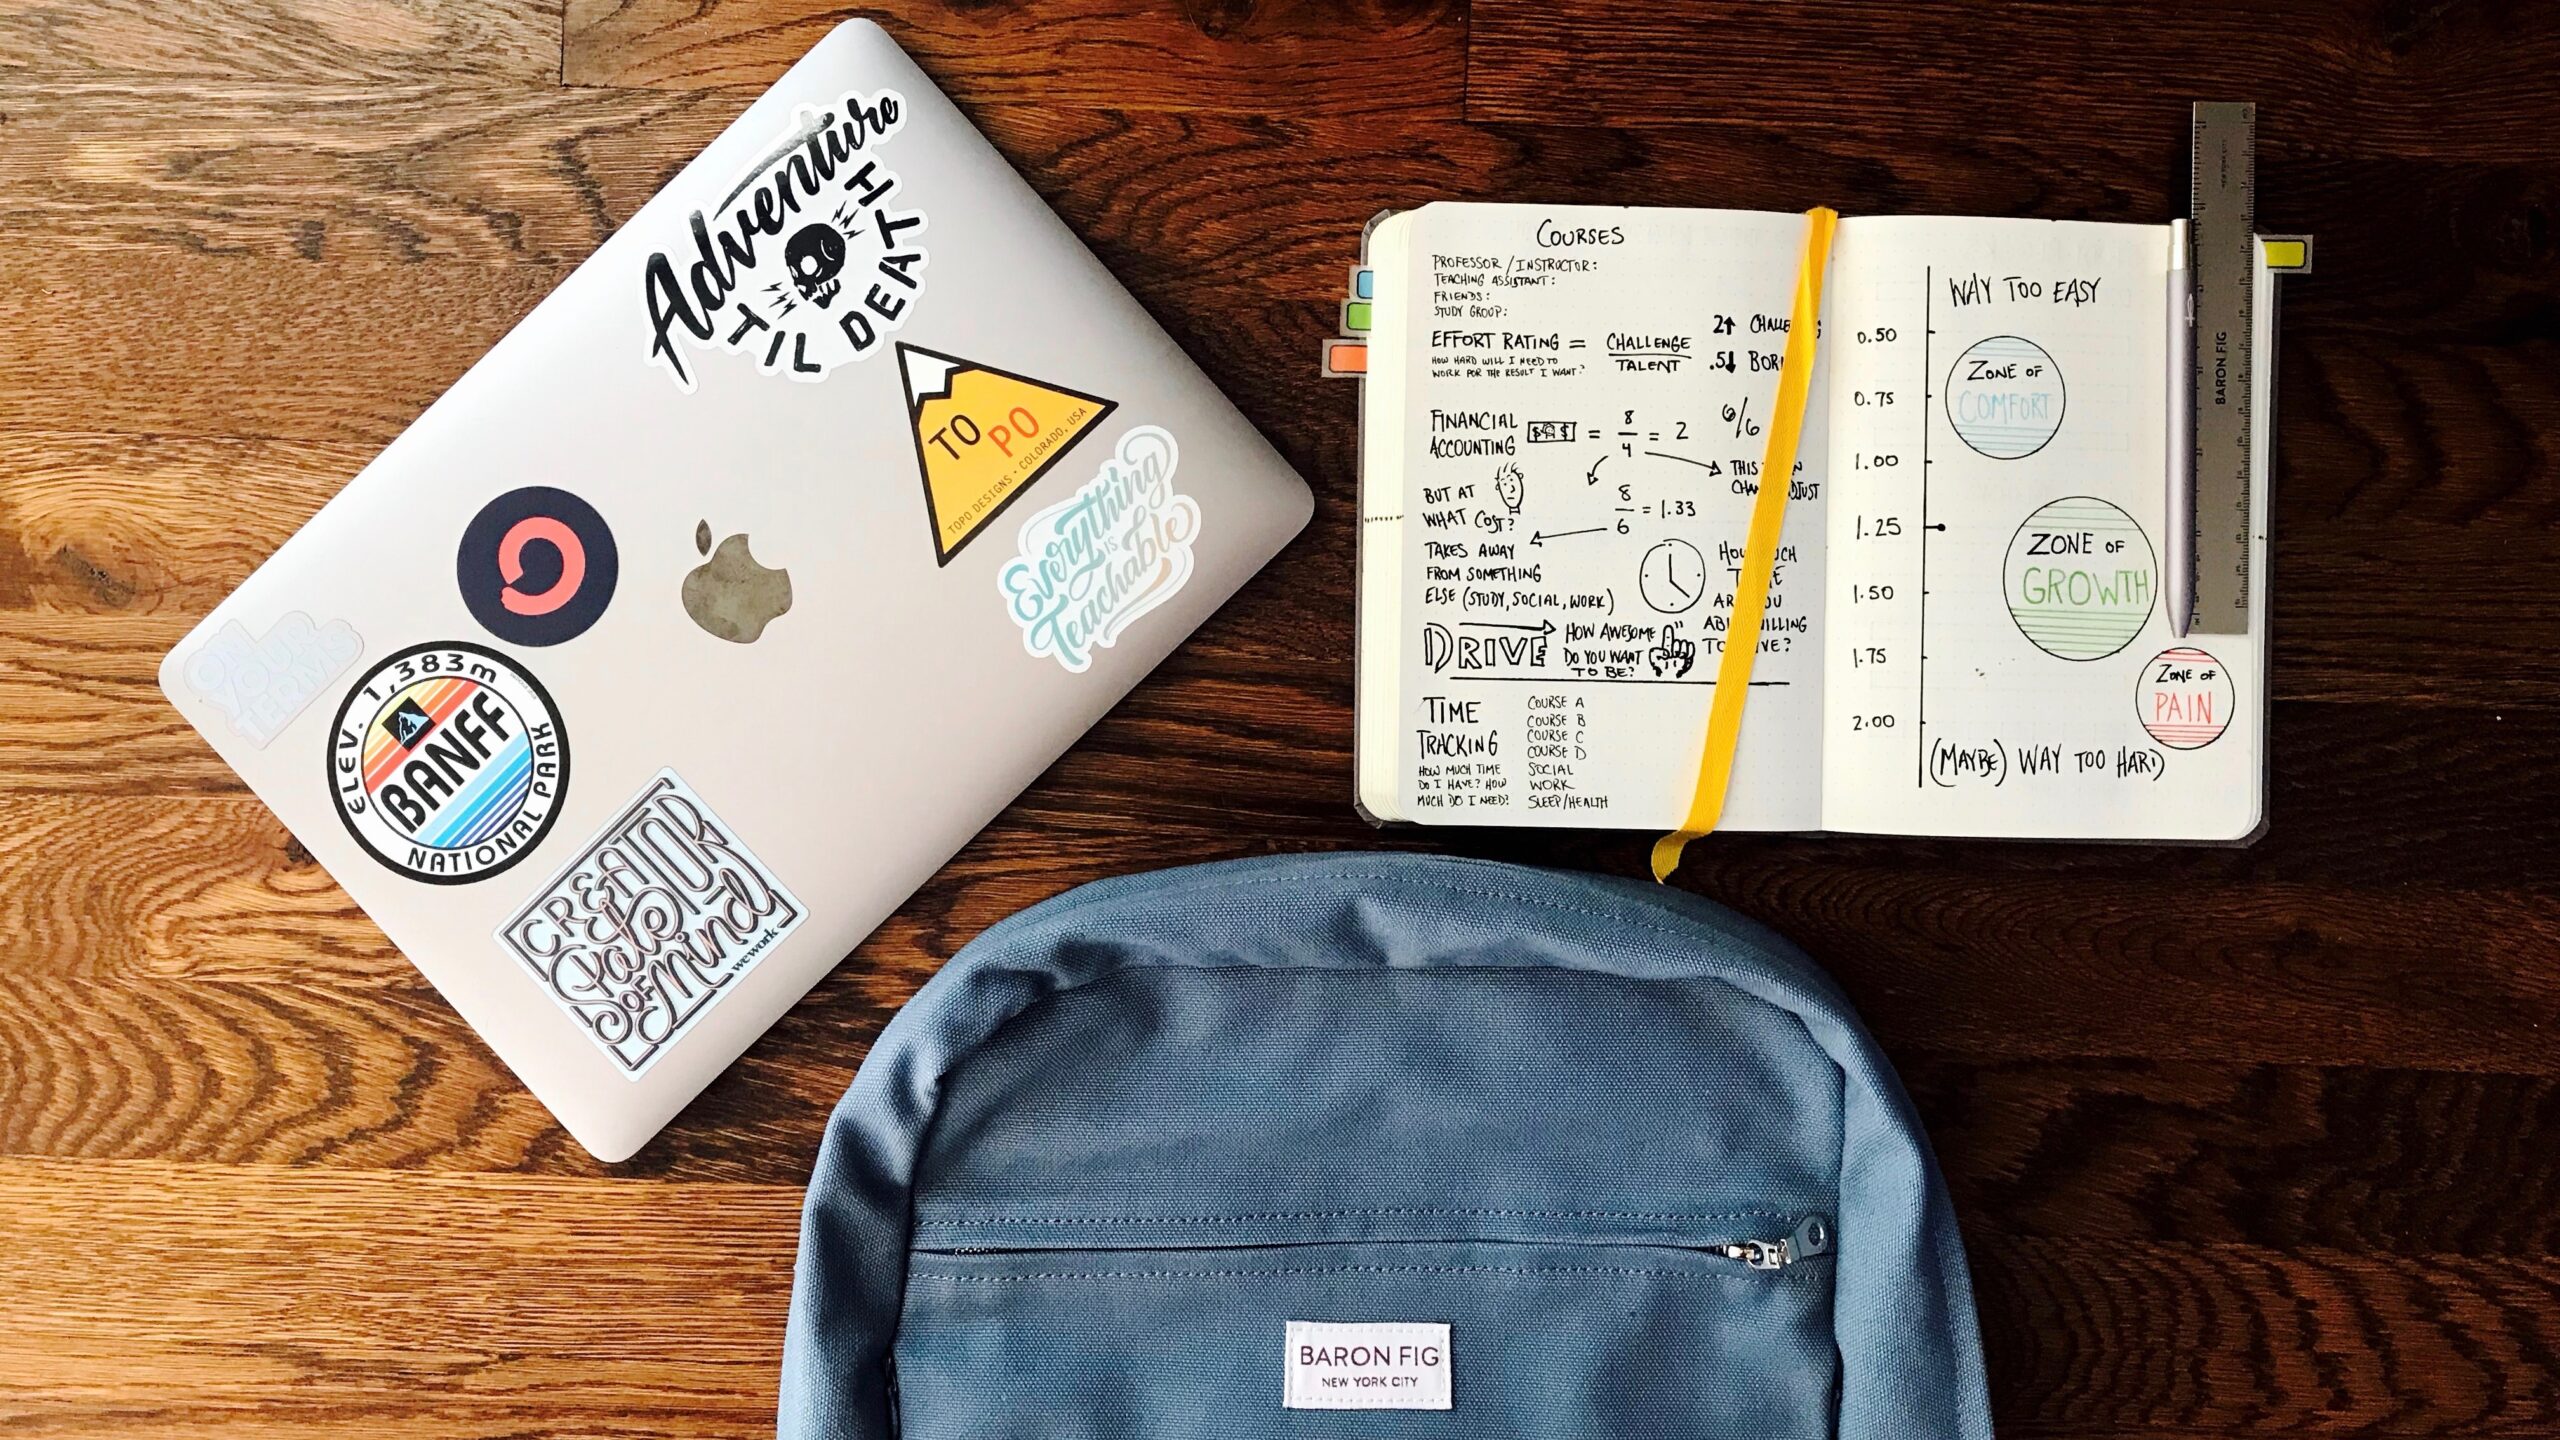 Adventure
TIL DEATH
TO
PO
TOPO DESIGNS · COLORADO, USA
Everything
IS
Teachable
ON
YOUR
TERMS
ELEV. 1,383m
BANFF
NATIONAL PARK
CREATOR
State
OF
Mind
wework
COURSES
PROFESSOR / INSTRUCTOR:
TEACHING ASSISTANT:
FRIENDS:
STUDY GROUP:
EFFORT RATING = CHALLENGE
TALENT
HOW HARD WILL I NEED TO
WORK FOR THE RESULT I WANT?
2↑
.5↓
FINANCIAL
ACCOUNTING
$ $ = 8/4 = 2
6/6
THIS
8/6 = 1.33
BUT AT
WHAT COST?
TAKES AWAY
FROM SOMETHING
ELSE (STUDY, SOCIAL, WORK)
DRIVE
HOW AWESOME
DO YOU WANT
TO BE?
TIME
TRACKING
HOW MUCH TIME
DO I HAVE? HOW
MUCH DO I NEED?
COURSE A
COURSE B
COURSE C
COURSE D
SOCIAL
WORK
SLEEP/HEALTH
WAY TOO EASY
0.50
0.75
1.00
1.25
1.50
1.75
2.00
ZONE OF
COMFORT
ZONE OF
GROWTH
ZONE OF
PAIN
(MAYBE) WAY TOO HARD
BARON FIG
BARON FIG
NEW YORK CITY